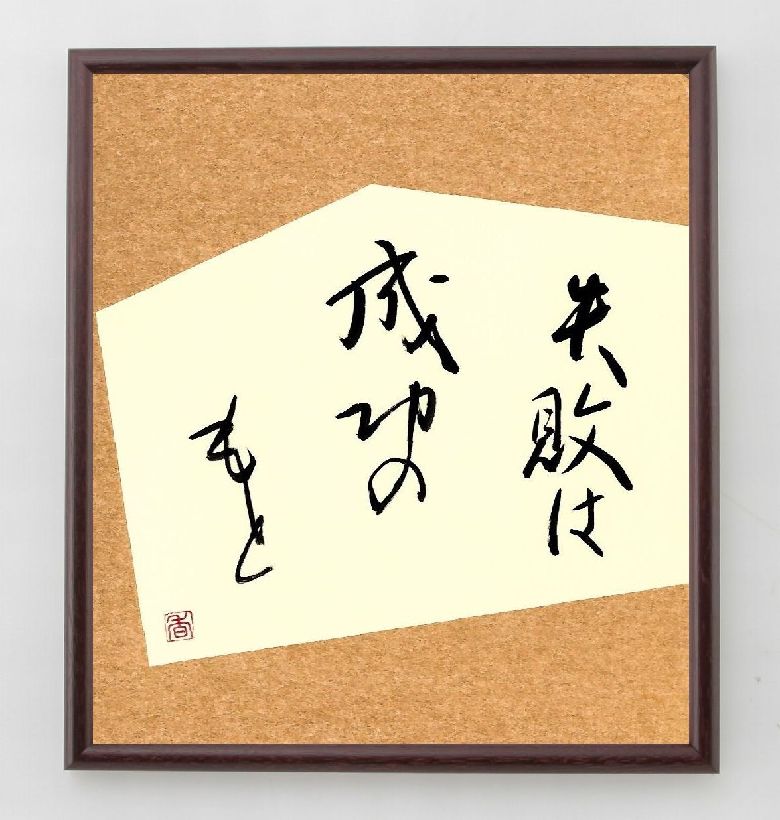 失敗は
成功の
もと
香